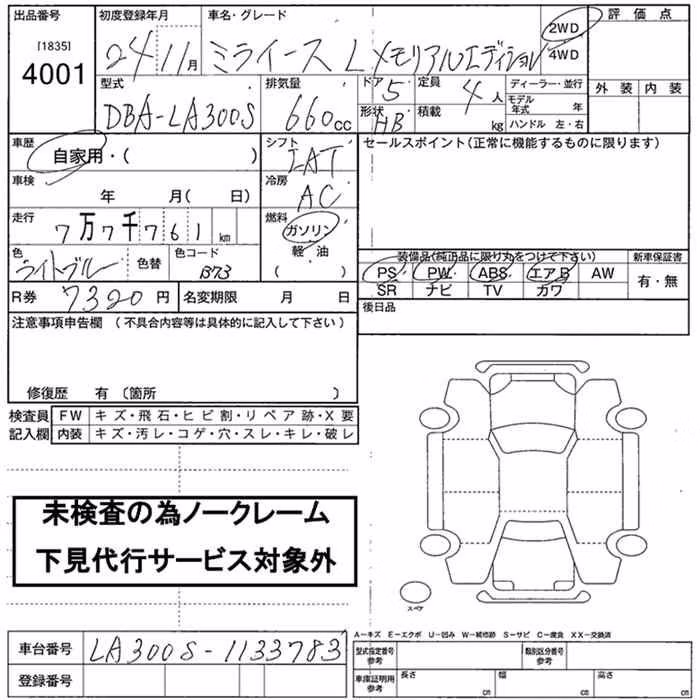 出品番号 初度登録年月 車名・グレード 2WD 評価点
[1835] 4001 24年11月 ミライース L メモリアルエディション 4WD
型式 排気量 ドア 5 定員 4人 ディーラー・並行 外装 内装
DBA-LA300S 660cc 形状 HB 積載 kg モデル年式 年
ハンドル 左・右
車歴 自家用・( ) シフト IAT セールスポイント(正常に機能するものに限ります)
車検 年 月( 日) 冷房 AC
走行 7万7千761km 燃料 ガソリン
軽油
( )
色 ライトブルー 色替 色コード B73
装備品(純正品に限り丸をつけて下さい) 新車保証書
PS PW ABS エアB AW 有・無
SR ナビ TV カワ
R券 7320円 名変期限 月 日 後日品
注意事項申告欄 (不具合内容等は具体的に記入して下さい)
修復歴 有 〔箇所 )
検査員記入欄 FW キズ・飛石・ヒビ割・リペア跡・X要
内装 キズ・汚レ・コゲ・穴・スレ・キレ・破レ
未検査の為ノークレーム
下見代行サービス対象外
スペア
A-キズ E-エクボ U-凹み W-補修跡 S-サビ C-腐食 XX-交換済
車台番号 LA300S-1133783 型式指定番号 参考 類別区分番号 参考
登録番号 車庫証明用 参考 長さ cm 幅 cm 高さ cm